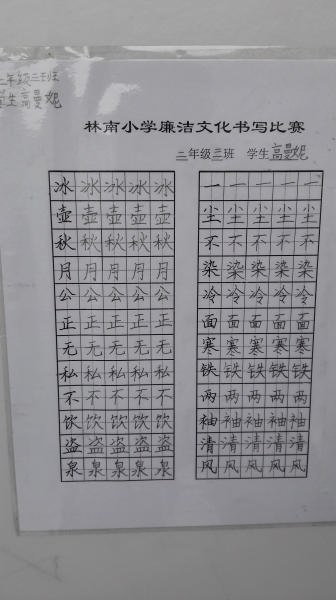 二年级三班
学生高曼妮
林南小学廉洁文化书写比赛
二年级三班 学生高曼妮
冰冰冰冰冰
壶壶壶壶壶
秋秋秋秋秋
月月月月月
公公公公公
正正正正正
无无无无无
私私私私私
不不不不不
饮饮饮饮饮
盗盗盗盗盗
泉泉泉泉泉
一一一一一
尘尘尘尘尘
不不不不不
染染染染染
冷冷冷冷冷
面面面面面
寒寒寒寒寒
铁铁铁铁铁
两两两两两
袖袖袖袖袖
清清清清清
风风风风风